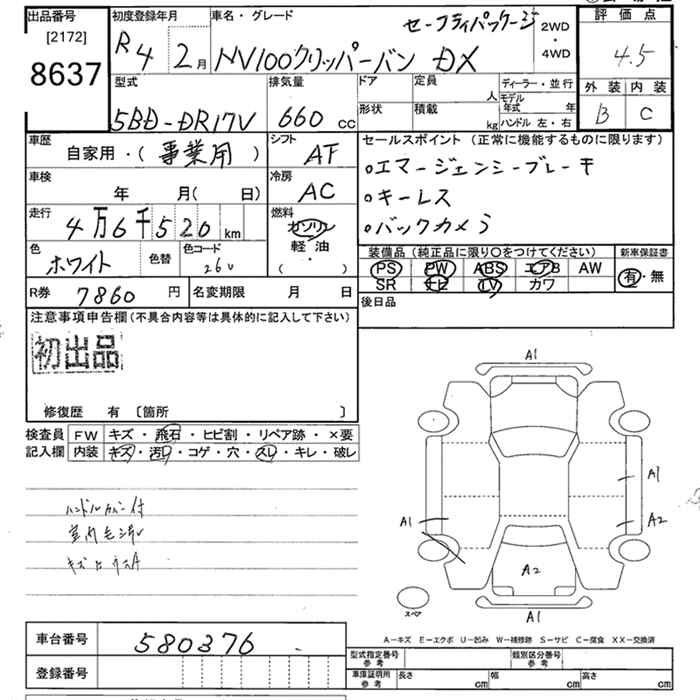 出品番号
[2172]
8637
初度登録年月
R4 2月
車名・グレード
セーフティパッケージ
NV100クリッパーバン DX
2WD
・
4WD
評価点
4.5
外装 内装
B C
型式
5BD-DR17V
排気量
660 cc
ドア
定員
人
形状
積載
kg
ディーラー・並行
モデル年式 年
ハンドル 左・右
車歴
自家用・(事業用)
シフト
AT
車検
年 月(日)
冷房
AC
走行
4万6千520km
燃料
ガソリン
軽・油
・
( )
色
ホワイト
色替
色コード
26U
セールスポイント(正常に機能するものに限ります)
○エマージェンシーブレーキ
○キーレス
○バックカメラ
装備品(純正品に限り○をつけてください)
PS PW ABS エアB AW
SR ナビ TV カワ
新車保証書
有・無
R券 7860円
名変期限 月 日
後日品
注意事項申告欄(不具合内容等は具体的に記入して下さい)
初出品
修復歴 有 〔箇所 〕
検査員記入欄
FW キズ・飛石・ヒビ割・リペア跡・×要
内装 キズ・汚レ・コゲ・穴・スレ・キレ・破レ
ハンドルカバー付
A1
A1
A1
A2
A2
A1
スペア
A-キズ E-エクボ U-凹み W-補修跡 S-サビ C-腐食 XX-交換済
車台番号
580376
登録番号
型式指定番号
参考
類別区分番号
参考
車庫証明用
参考
長さ cm
幅 cm
高さ cm